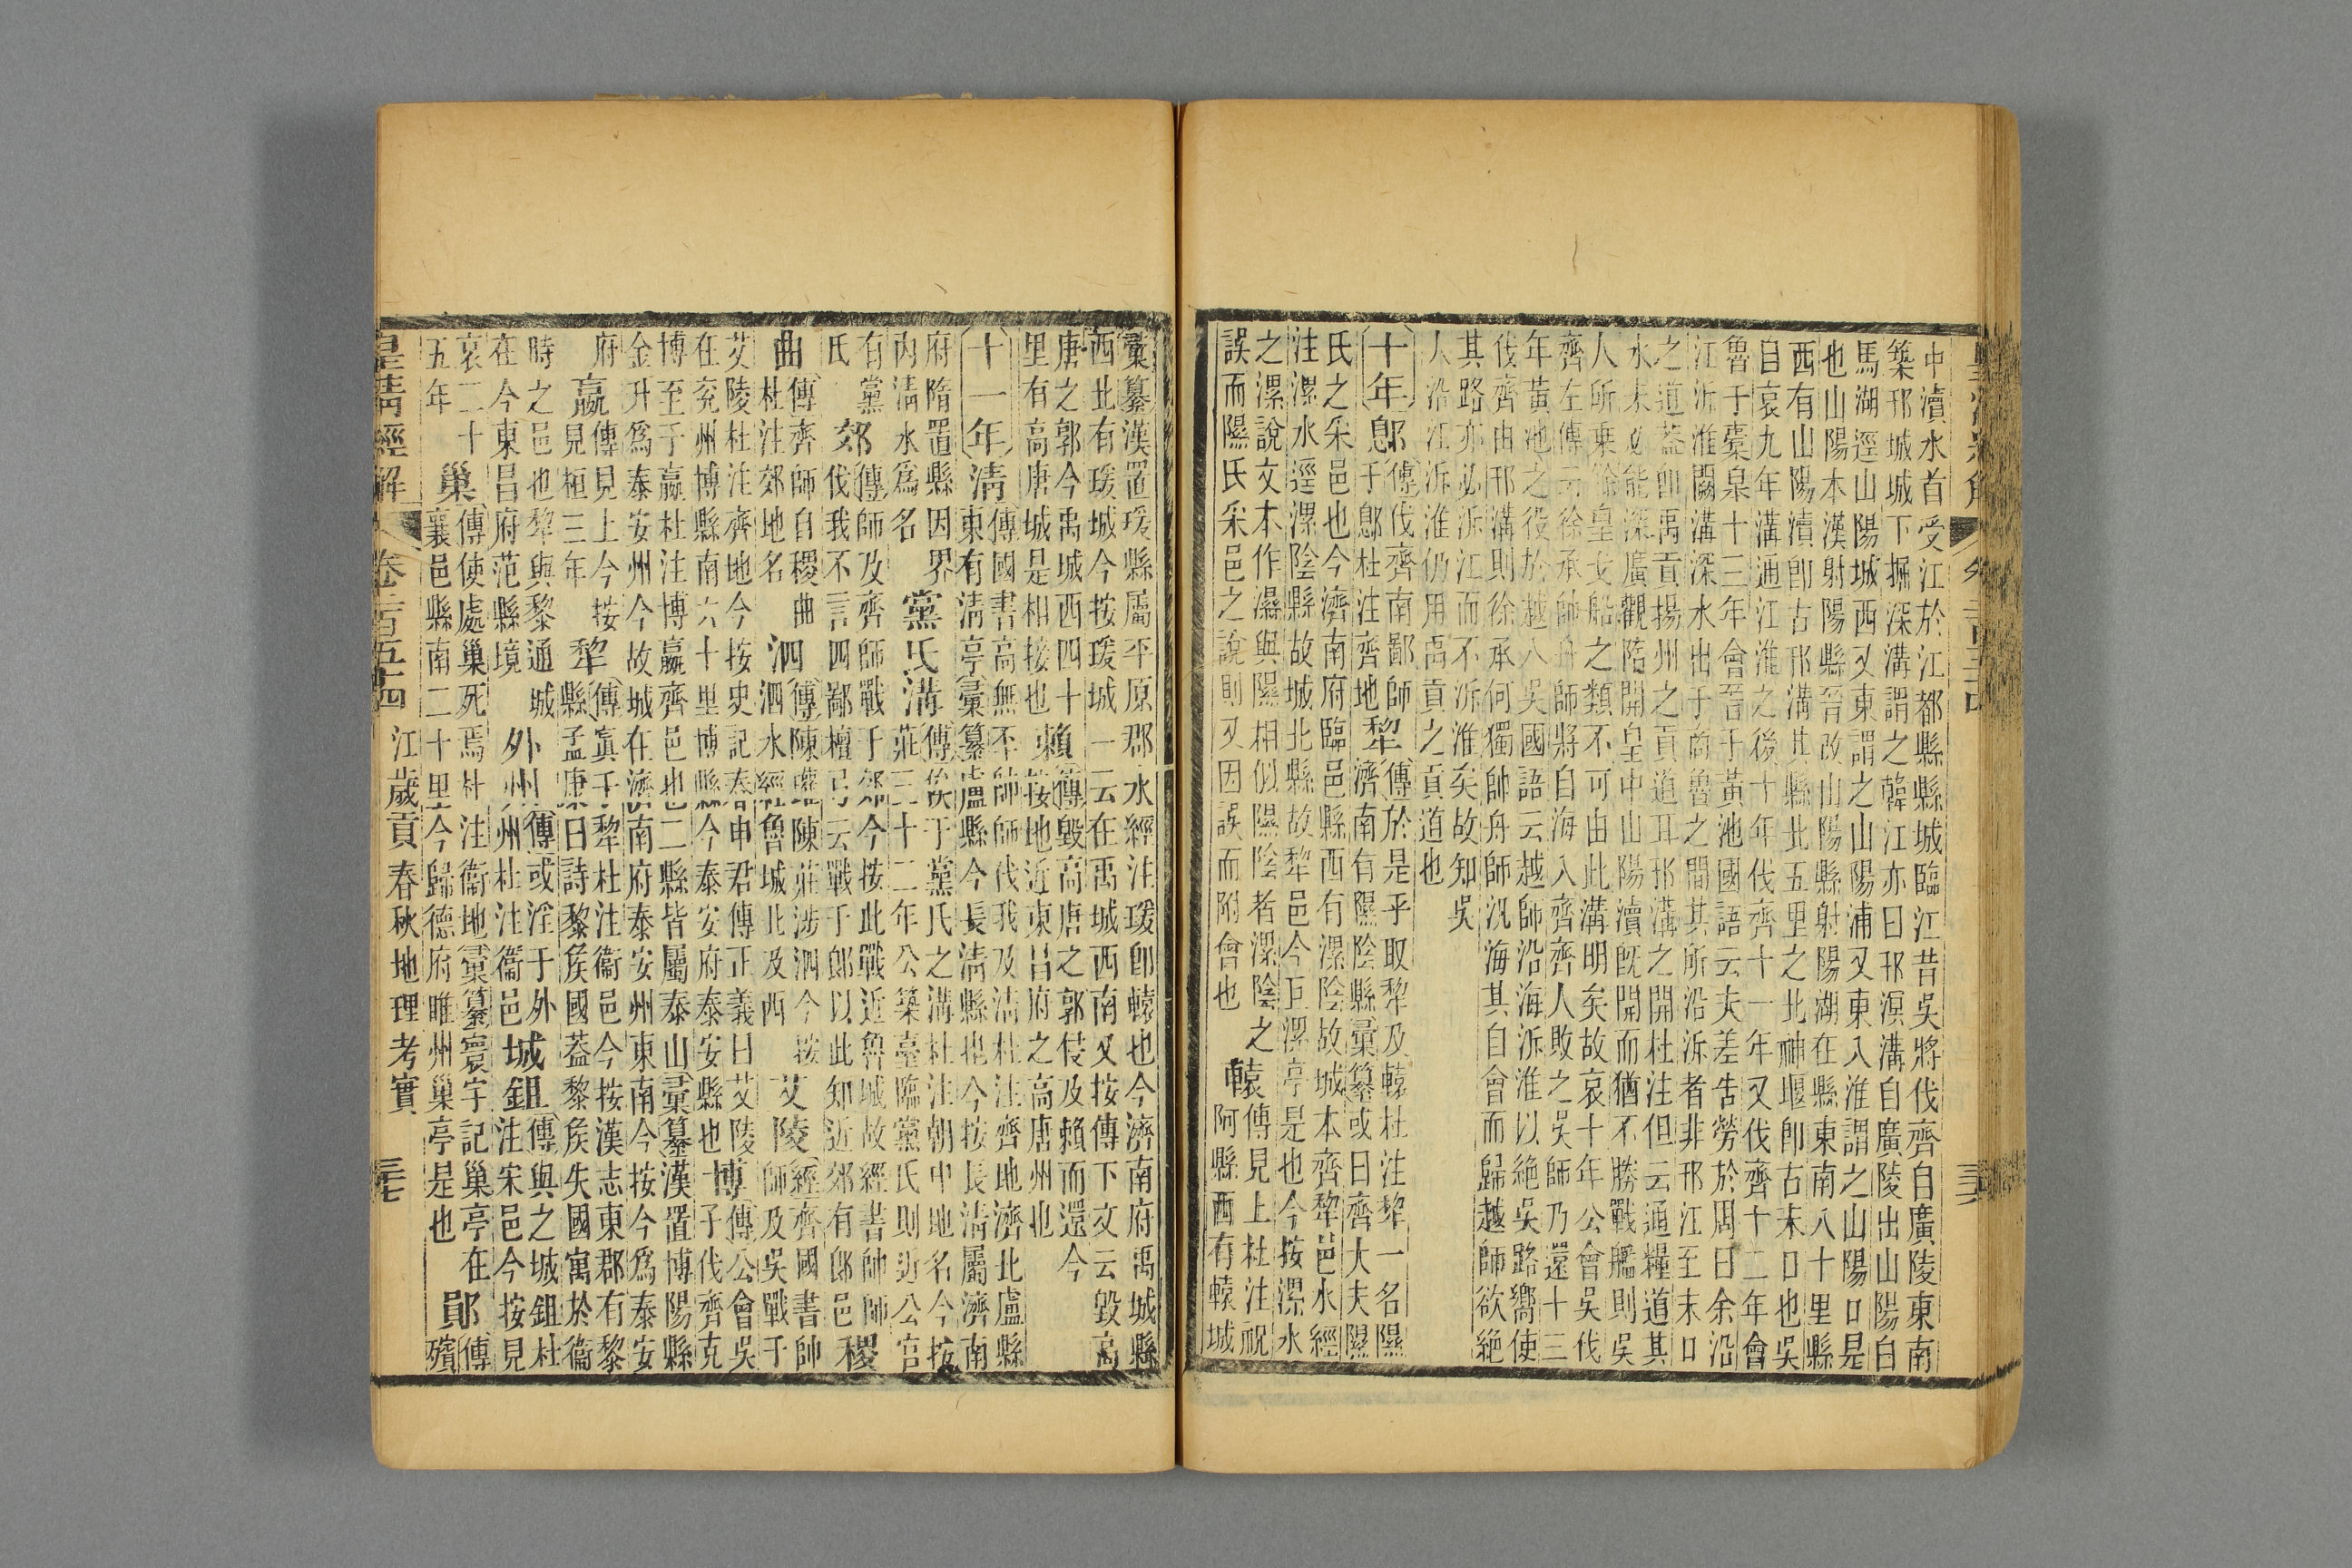 中瀆水首受江於江都縣縣城臨江昔吳將伐齊自廣陵東南
築邗城城下掘深溝謂之韓江亦曰邗溟溝自廣陵出山陽白
馬湖逕山陽城西又東謂之山陽浦又東入淮謂之山陽口是
也山陽本漢射陽縣晉改山陽縣射陽湖在縣東南八十里縣
西有山陽瀆即古邗溝其縣北五里之北神堰即古末口也吳
自哀九年溝通江淮之後十年伐齊十一年又伐齊十二年會
魯于橐臯十三年會晉于黃池國語云夫差告勞於周曰余沿
江泝淮闕溝深水出于商魯之間其所沿泝者非邗江至末口
之道蓋即禹貢揚州之貢道耳邗溝之開杜注但云通糧道其
水未必能深廣觀隋開皇中山陽瀆既開而猶不勝戰艦則吳
人所乗餘皇戈船之類不可由此溝明矣故哀十年公會吳伐
齊左傳云徐承帥舟師將自海入齊齊人敗之吳師乃還十三
年黃池之役於越入吳國語云越師沿海泝淮以絕吳路嚮使
伐齊由邗溝則徐承何獨帥舟師汎海其自會而歸越師欲絕
其路亦必泝江而不泝淮矣故知吳
人沿江泝淮仍用禹貢之貢道也
十年 郹 傳伐齊南鄙師
于郹杜注齊地 犂 傳於是乎取犂及轅杜注犂一名隰
濟南有隰陰縣彙纂或曰齊大夫隰
氏之采邑也今濟南府臨邑縣西有漯陰故城本齊犂邑水經
注漯水逕漯陰縣故城北縣故犂邑今巨漯亭是也今按漯水
之漯說文本作濕與隰相似隰陰者漯陰之
誤而隰氏采邑之說則又因誤而附會也 轅 傳見上杜注祝
阿縣西有轅城
彙纂漢置瑗縣屬平原郡水經注瑗即轅也今濟南府禹城縣
西北有瑗城今按瑗城一云在禹城西南又按傳下文云毀高
唐之郭今禹城西四十
里有高唐城是相接也 賴 傳毀高唐之郭侵及賴而還今
按地近東昌府之高唐州也
十一年 清 傳國書高無丕帥師伐我及清杜注齊地濟北盧縣
東有清亭彙纂盧縣今長清縣也今按長清屬濟南
府隋置縣因界
內清水爲名 黨氏溝 傳俟于黨氏之溝杜注朝中地名今按
莊三十二年公築臺臨黨氏則近公宮
有黨
氏 郊 傳師及齊師戰于郊今按此戰近魯城故經書帥師
伐我不言四鄙檀弓云戰于郞以此知近郊有郞邑 稷
曲 傳齊師自稷曲
杜注郊地名 泗 傳陳瓘陳莊涉泗今按
泗水經魯城北及西 艾陵 經齊國書帥
師及吳戰于
艾陵杜注齊地今按史記春申君傳正義曰艾陵
在兗州博縣南六十里博縣今泰安府泰安縣也 博 傳公會吳
子伐齊克
博至于嬴杜注博嬴齊邑也二縣皆屬泰山彙纂漢置博陽縣
金升爲泰安州今故城在濟南府泰安州東南今按今爲泰安
府 嬴 傳見上今按
見桓三年 犂 傳寘于犂杜注衞邑今按漢志東郡有黎
縣孟康曰詩黎矦國葢黎矦失國寓於衞
時之邑也犂與黎通城
在今東昌府范縣境 外州 傳或淫于外
州杜注衞邑 城鉏 傳與之城鉏杜
注宋邑今按見
哀二十
五年 巢 傳使處巢死焉杜注衞地彙纂寰宇記巢亭在
襄邑縣南二十里今歸德府睢州巢亭是也 鄖 傳
殯
皇淸經解 卷二百五十四 江歲貢春秋地理考實 三七